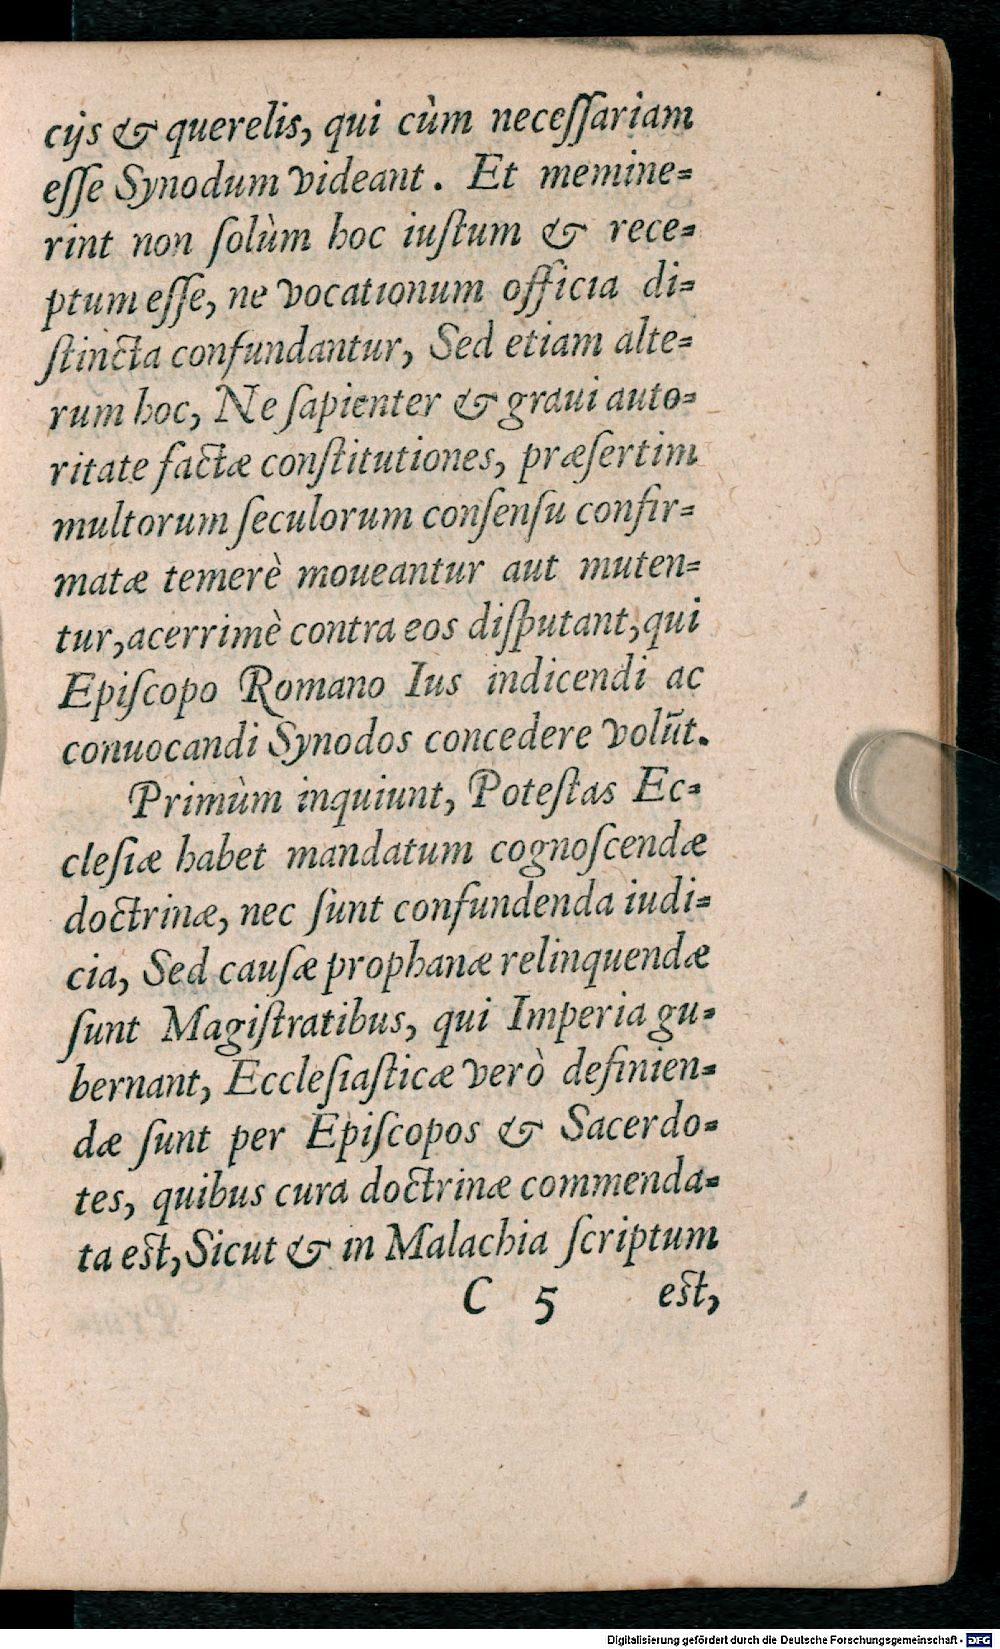 cijs & querelis, qui cùm neceſſariam
eſſe Synodum videant. Et memine-
rint non ſolùm hoc iuſtum & rece-
ptum eſſe, ne vocationum officia di-
ſtincta confundantur, Sed etiam alte-
rum hoc, Ne ſapienter & graui auto-
ritate factæ conſtitutiones, præſertim
multorum ſeculorum conſenſu confir-
matæ temerè moueantur aut muten-
tur, acerrimè contra eos diſputant, qui
Epiſcopo Romano Ius indicendi ac
conuocandi Synodos concedere volūt.
Primùm inquiunt, Poteſtas Ec-
cleſiæ habet mandatum cognoſcendæ
doctrinæ, nec ſunt confundenda iudi-
cia, Sed cauſæ prophanæ relinquendæ
ſunt Magiſtratibus, qui Imperia gu-
bernant, Eccleſiaſticæ verò definien-
dæ ſunt per Epiſcopos & Sacerdo-
tes, quibus cura doctrinæ commenda-
ta eſt, Sicut & in Malachia ſcriptum
C 5 eſt,
Digitalisierung gefördert durch die Deutsche Forschungsgemeinschaft - DFG